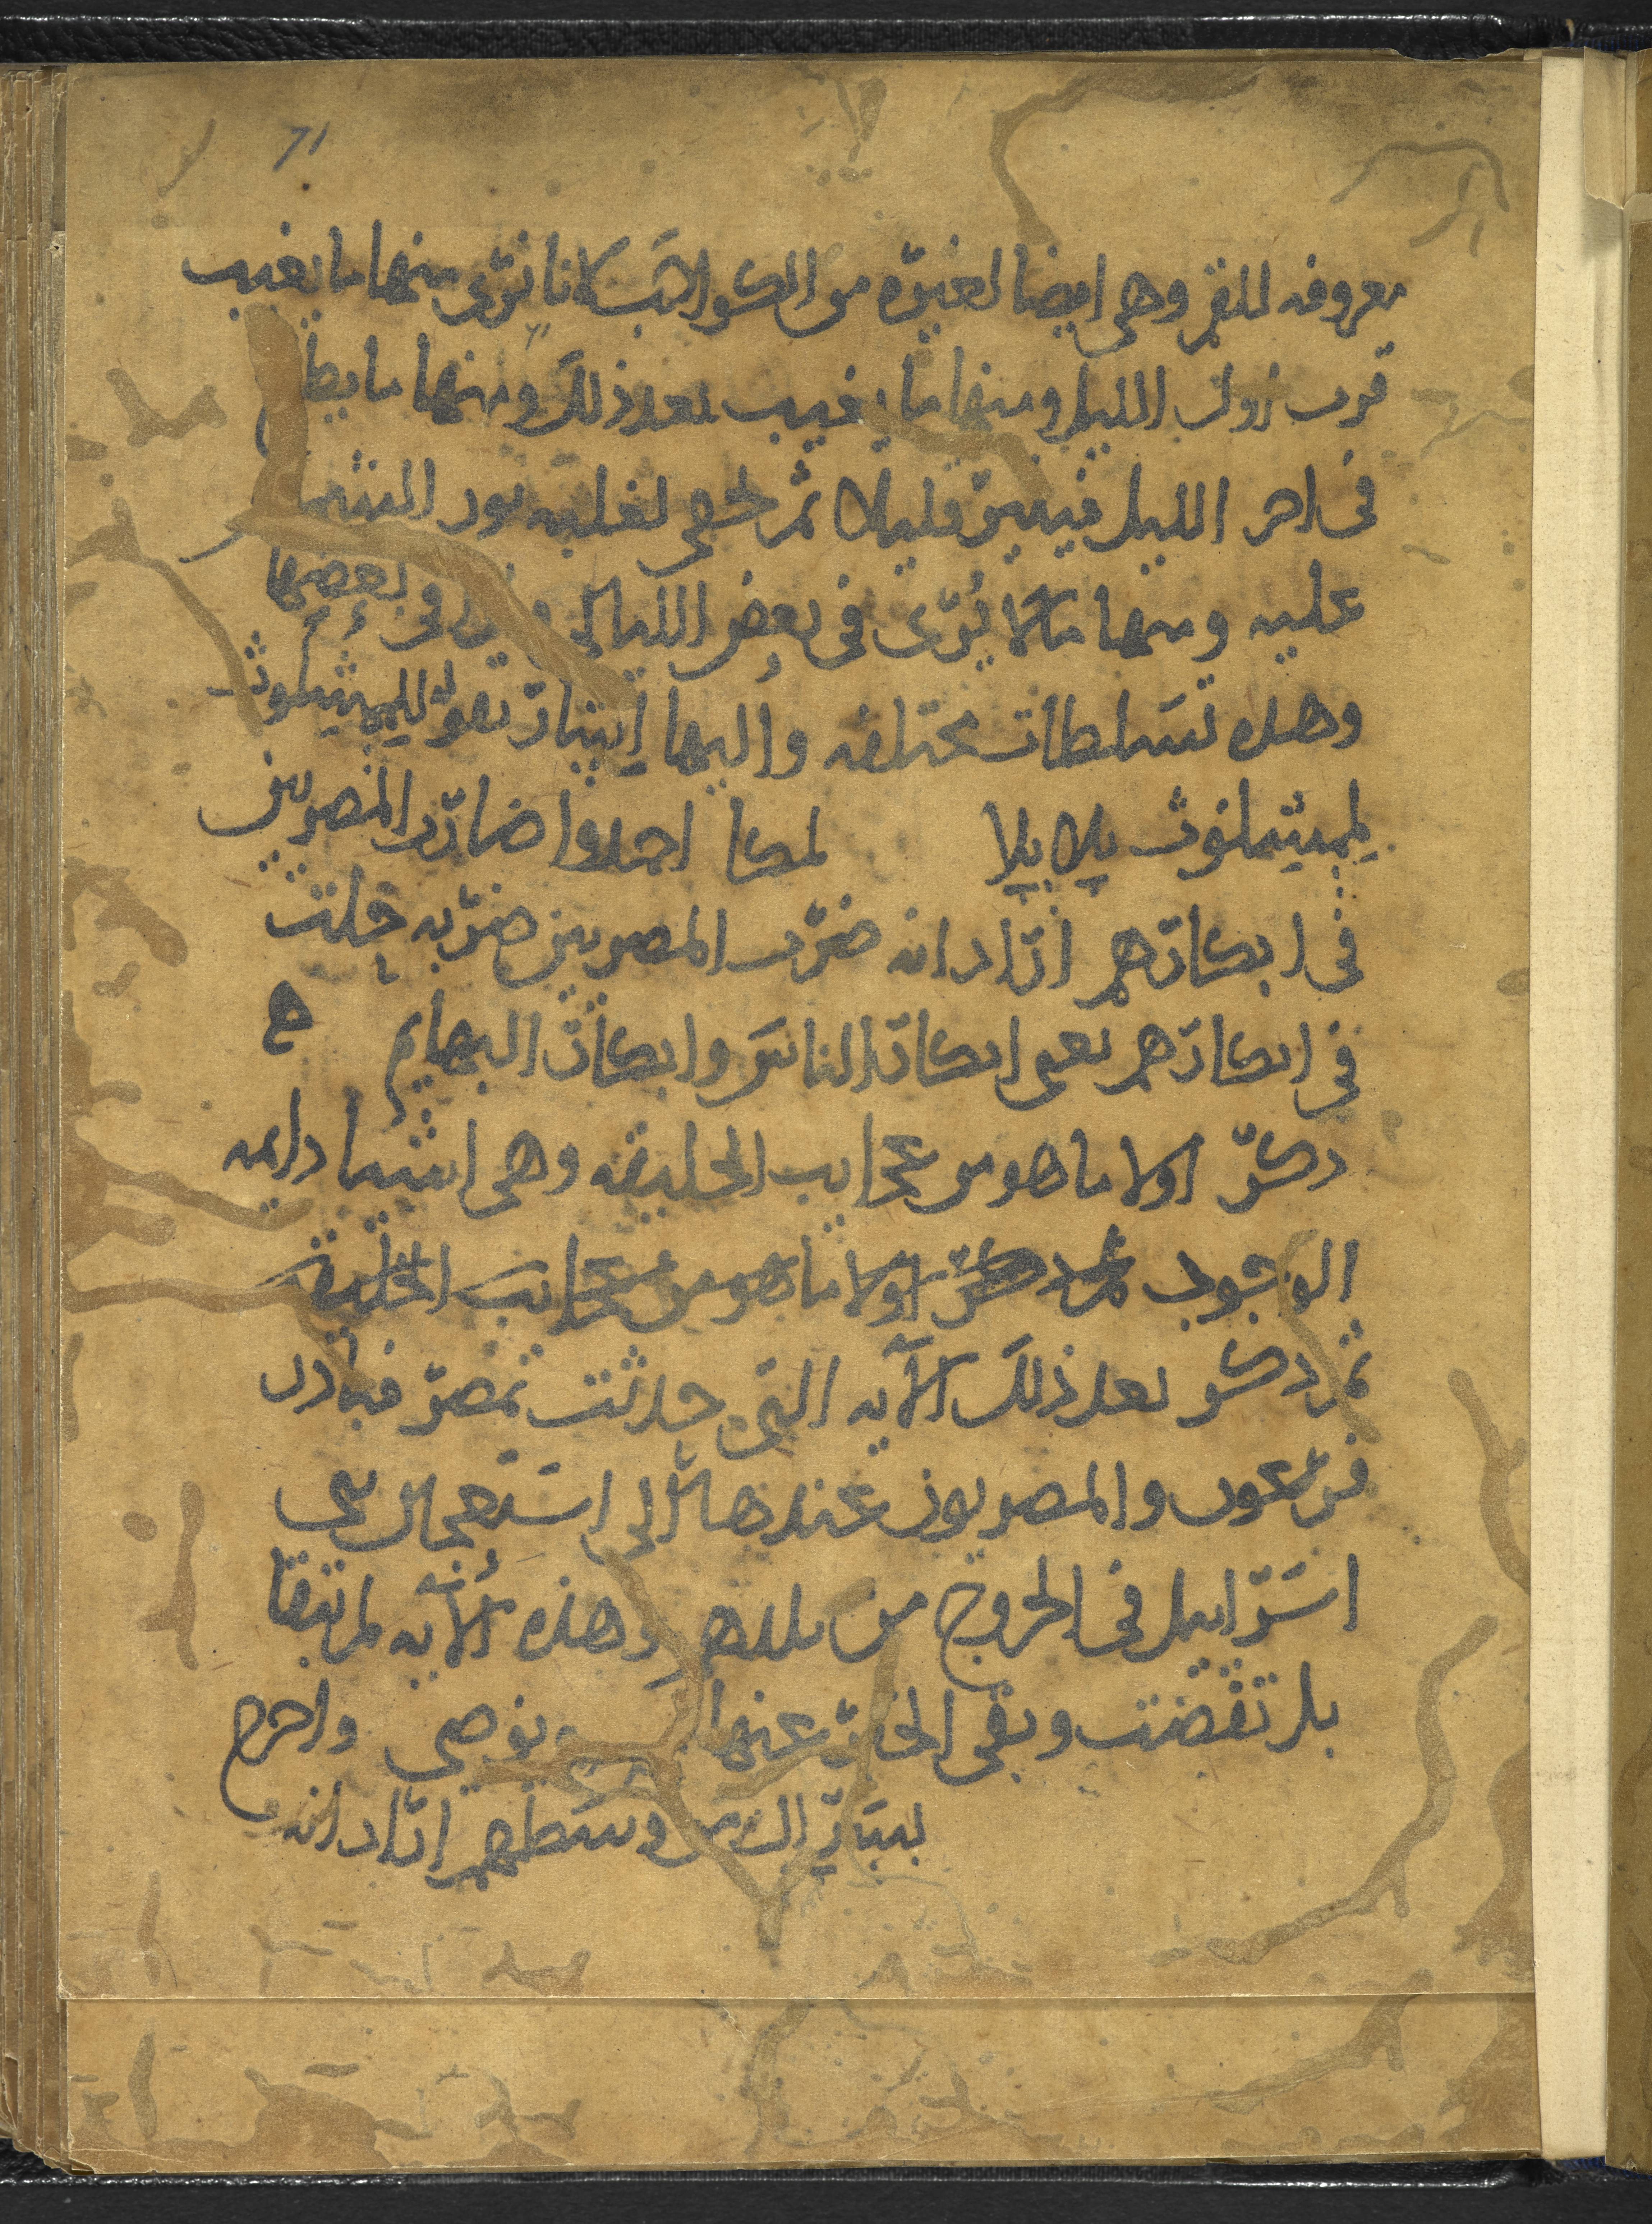 71
معروفه للقمر وهى ايضا لغيره من الكواكب لانا نرى منها ما يغيب
قرب زول الليل ومنها ما يغيب بعد ذلك ومنها ما يطلع
فى اخر الليل فيبين قليلا ثم يخفى لغلبه نور الشمس
عليه ومنها ما لا يُرى فى بعض الليالى وفى بعضها
وهذه تسلطات مختلفه واليها اشار بقوله لليمشيلوث
ليمشيلوث بلايلا لمكا احدوا ضارد المصريين
فى ابكارهم اراد انه ضرب المصريين ضربه حلت
فى ابكارهم يعنى ابكار الناس وابكار البهايم ه
ذكر اولا ما هو من عجايب الخليقه وهى اشيا دايمه
الوجود ثم ذكر اولا ما هو من عجايب الخليقة
ثم ذكر بعد ذلك الآيه التى حدثت بمصر فبادر
فرعون والمصريون عندها الى استعجال بنى
اسراييل فى الخروج من بلدهم وهذه الآيه لم تبقا
بل تقضت وبقى الخبر عنها يوصى واخرج
وسطهم اراد انه